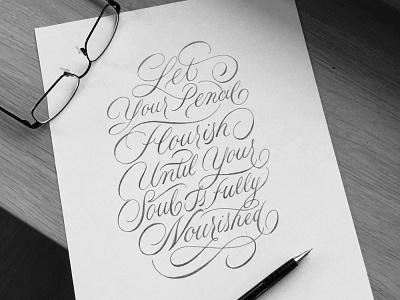 Let
Your Pencil
Flourish
Until Your
Soul Is Fully
Nourished